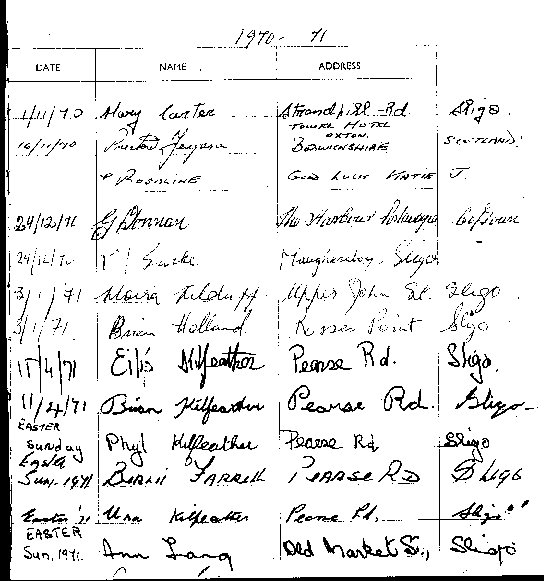 1970-71
DATE NAME ADDRESS
1/11/70 Mary Carter Strandhill Rd Sligo
TOWER HOTEL
OXTON
16/11/70 BERWICKSHIRE SCOTLAND
+ ROSALINE GOOD LUCK KATIE J.
24/12/70 The Harbour
24/12/70 Sligo
3/1/71 Maura Kilduff Upper John St. Sligo
3/1/71. Brian Holland Rosses Point Sligo
11/4/71 Eilis Kilfeather Pearse Rd. Sligo.
11/4/71 Brian Kilfeather Pearse Rd. Sligo-
EASTER
Sunday Phyl Kilfeather Pearse Rd Sligo
Easter
Sun. 1971 FARRELL PEARSE RD Sligo
Easter '71 Una Kilfeather Pearse Rd. Sligo"
EASTER
Sun, 1971. Ann Lang Old Market St., Sligo